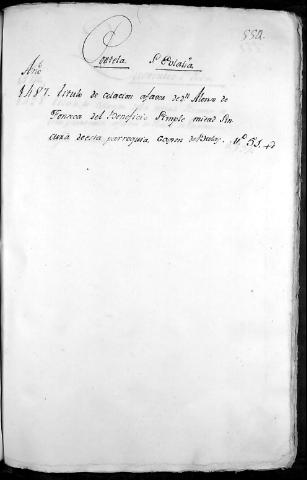 554.
Portela Sta Eulalia
Año
1487. titulo de colacion afavor de Dn Alonso de
Fonseca del Beneficio Simple mitad Sin
cura de esta parroquia